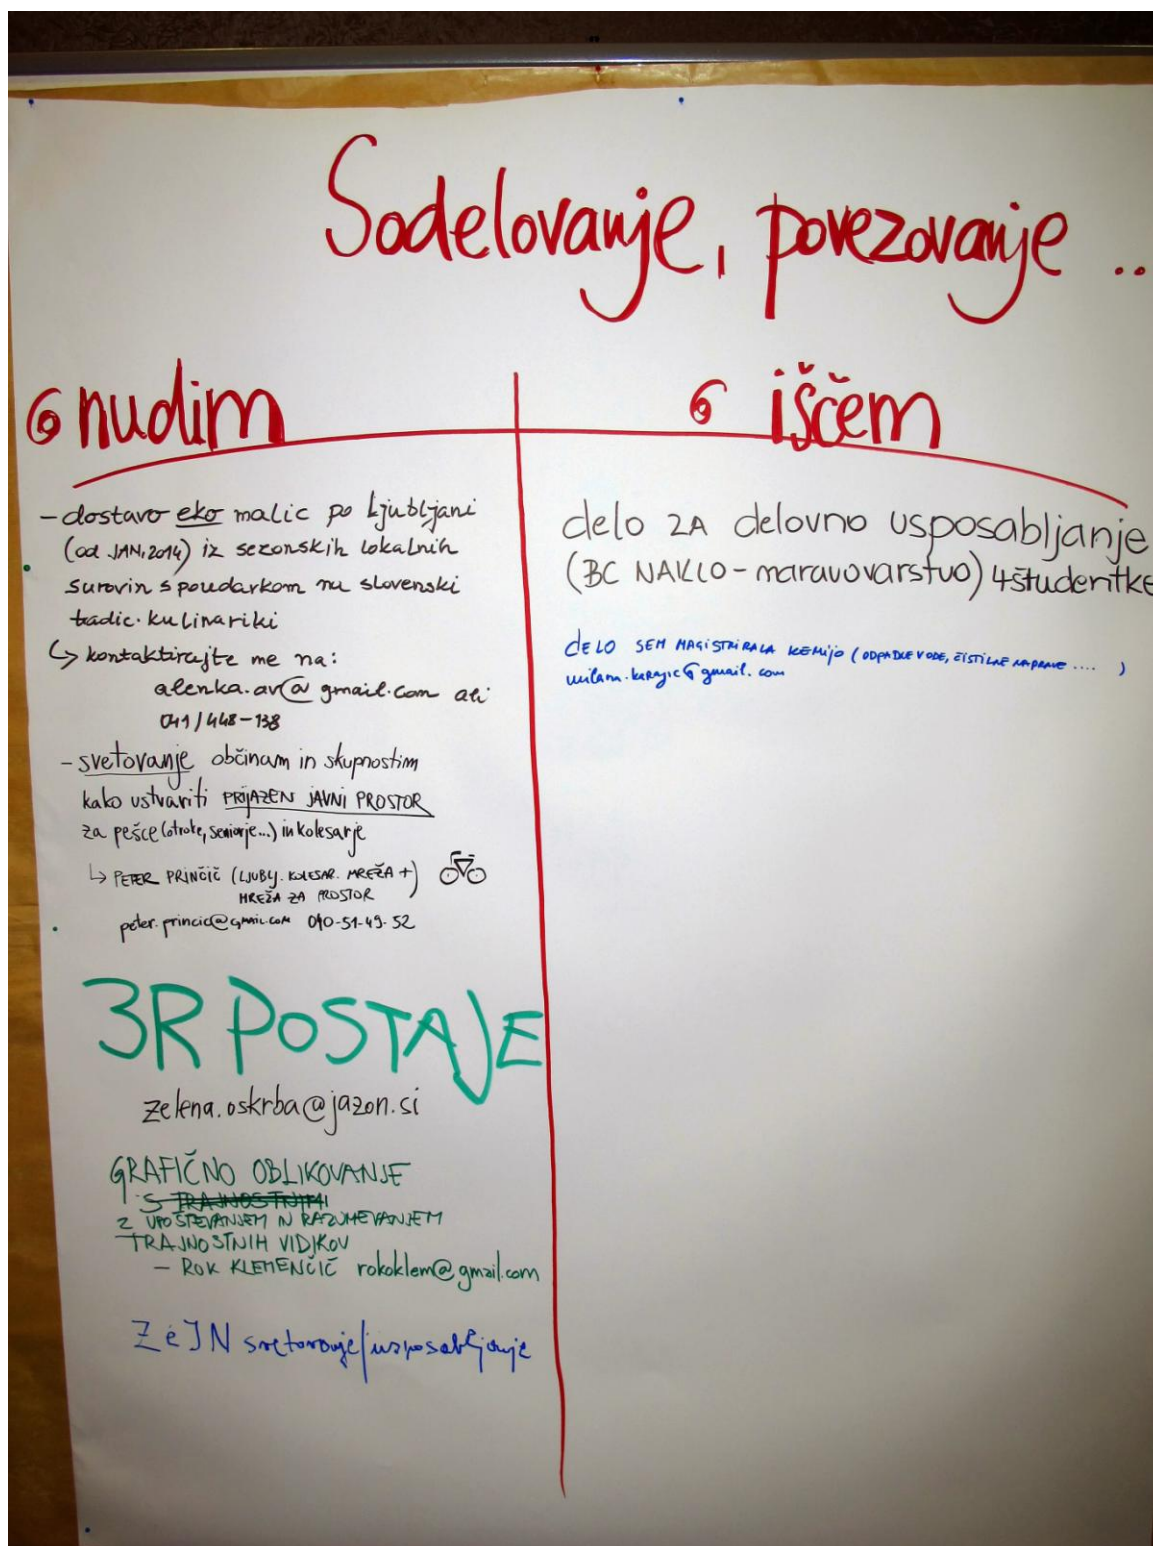 Sodelovanje, povezovanje ..
nudim
- dostavo eko malic po Ljubljani
(od JAN, 2014) iz sezonskih lokalnih
surovin s poudarkom na slovenski
tradic. kulinariki
↳ kontaktirajte me na:
alenka.av@gmail.com ali
041/448-138
- svetovanje občinam in skupnostim
kako ustvariti PRIJAZEN JAVNI PROSTOR
za pešce (otroke, seniorje...) in kolesarje
↳ PETER PRINČIČ (LJUBLJ. KOLESAR. MREŽA +)
MREŽA ZA PROSTOR
peter.princic@gmail.com 040-51-49-52
3R POSTAJE
zelena.oskrba@jazon.si
GRAFIČNO OBLIKOVANJE
S TRAJNOSTNIMI
Z UPOŠTEVANJEM IN RAZUMEVANJEM
TRAJNOSTNIH VIDIKOV
- ROK KLEMENČIČ rokoklem@gmail.com
ZeJN svetovanje/usposabljanje
iščem
delo ZA delovno usposabljanje
(BC NAKLO - naravovarstvo) 4 študentke
DELO SEM MAGISTRIRALA KEMIJO (ODPADLE VODE, ČISTILNE NAPRAVE .... )
@gmail.com